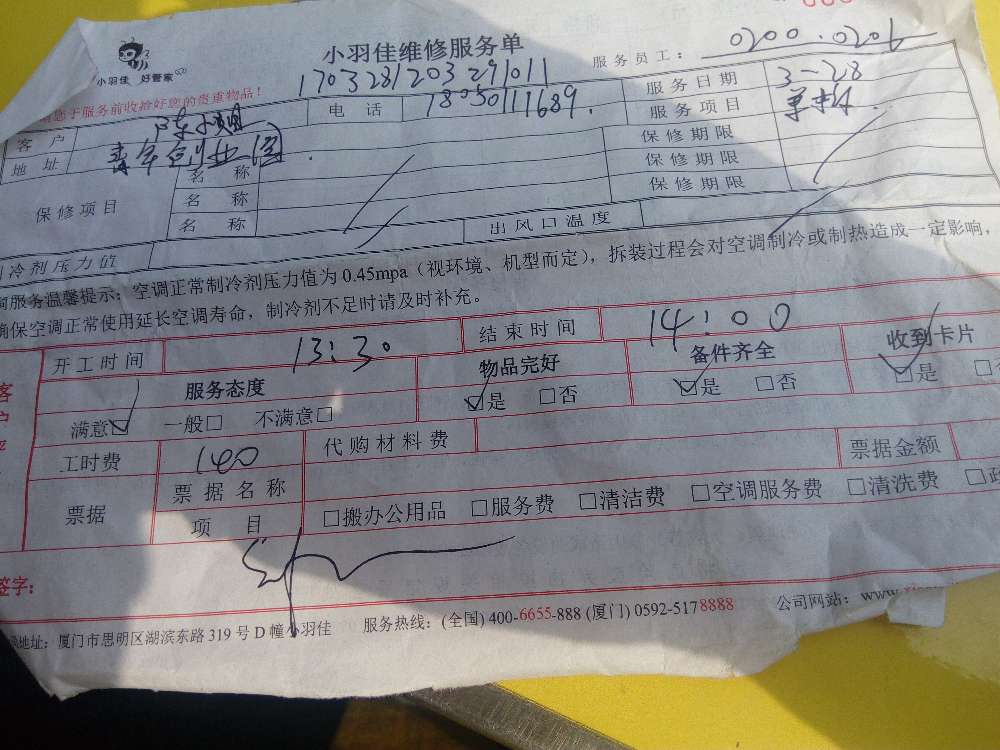 小羽佳 好管家
小羽佳维修服务单
服务员工: 0200.0206
1703281203291011
您于服务前收拾好您的贵重物品!
客户 陈小姐 电话 18050111689. 服务日期 3-28
地址 青年创业园. 服务项目 单拆
保修项目 名称 保修期限
名称 保修期限
名称 保修期限
冷剂压力值 出风口温度
服务温馨提示: 空调正常制冷剂压力值为0.45mpa(视环境、机型而定), 拆装过程会对空调制冷或制热造成一定影响,
确保空调正常使用延长空调寿命, 制冷剂不足时请及时补充。
开工时间 13:30 结束时间 14:00
服务态度 物品完好 备件齐全 收到卡片
满意☑ 一般□ 不满意□ ☑是 □否 ☑是 □否 ☑是
客户
工时费 140 代购材料费 票据金额
票据 票据名称
项目 □搬办公用品 □服务费 □清洁费 □空调服务费 □清洗费
签字:
地址: 厦门市思明区湖滨东路319号D幢小羽佳 服务热线: (全国) 400-6655-888 (厦门) 0592-5178888 公司网站: www.